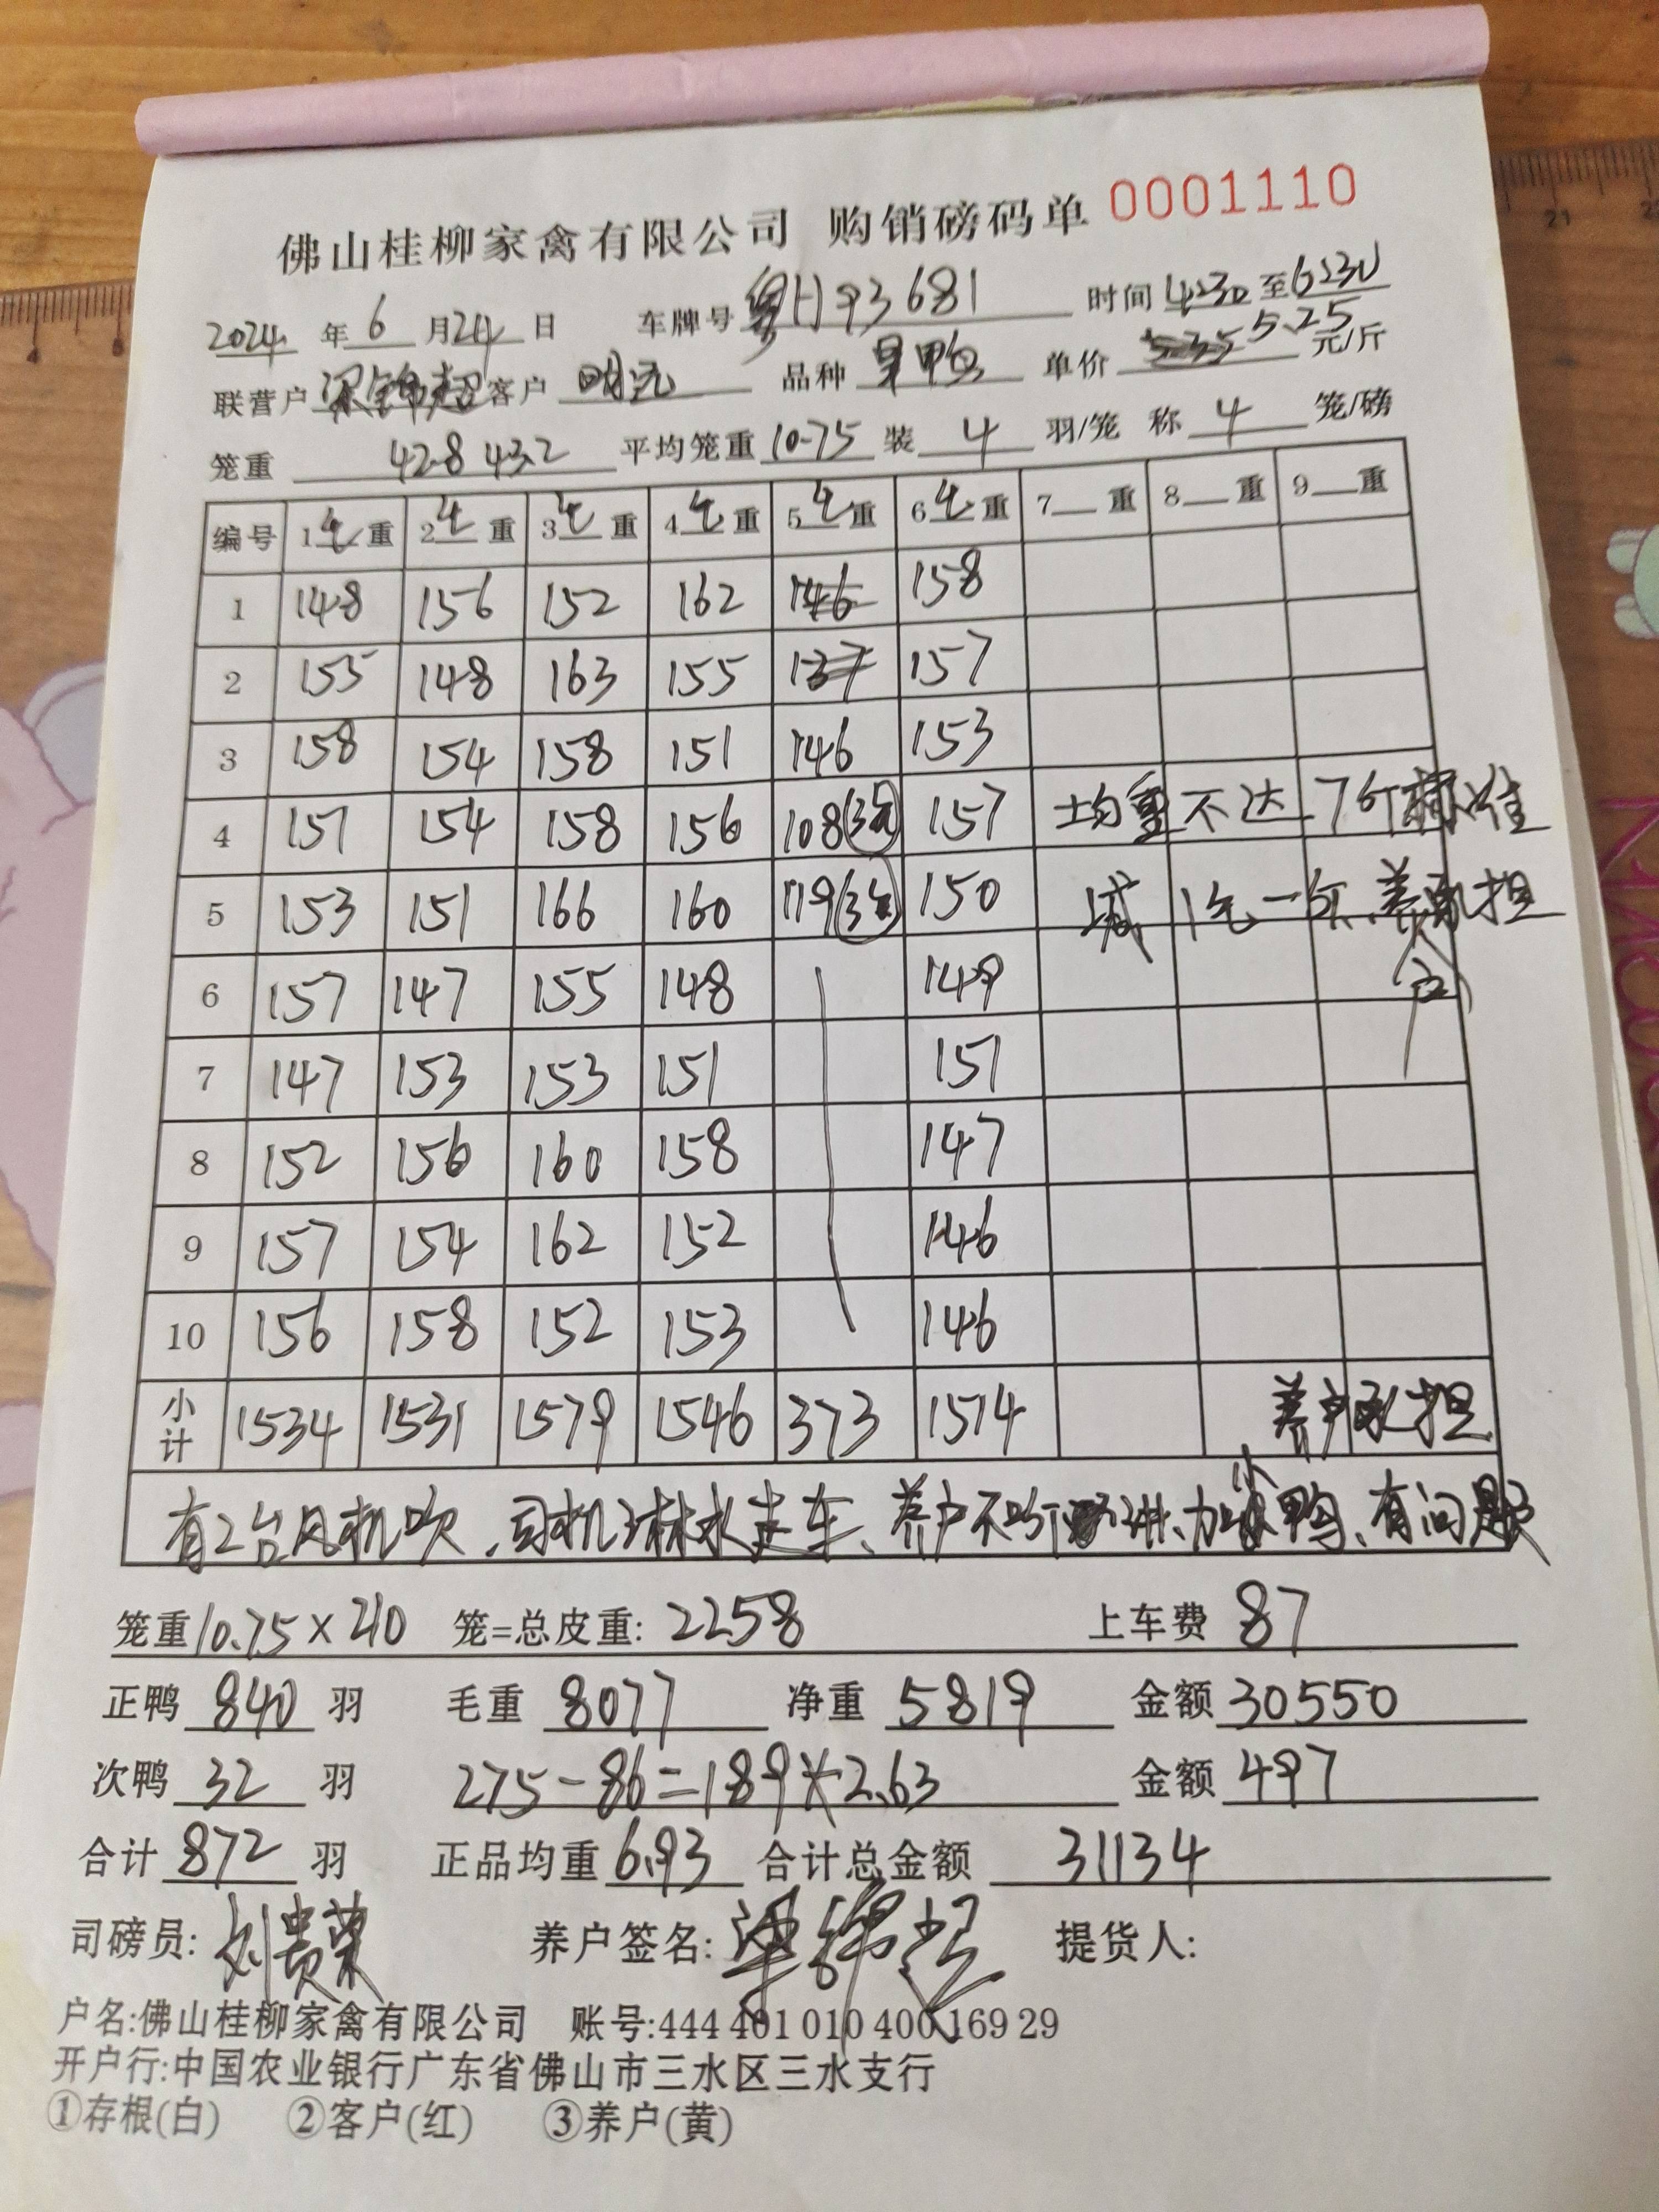 佛山桂柳家禽有限公司 购销磅码单 0001110
2024 年 6 月 24 日 车牌号 粤H93681 时间 4:30 至 6:30
联营户 梁锦超 客户 明记 品种 单价 5.25 元/斤
笼重 42.8 43.2 平均笼重 10.75 装 4 羽/笼 称 4 笼/磅
编号 1 4 重 2 4 重 3 4 重 4 4 重 5 4 重 6 4 重 7 重 8 重 9 重
1 148 156 152 162 146 158
2 155 148 163 155 137 157
3 158 154 158 151 146 153
4 151 154 158 156 108(3笼) 157 均重不达7斤标准
5 153 151 166 160 119(3笼) 150 减1毛一斤、养户承担
6 157 147 155 148 149
7 147 153 153 151 151
8 152 156 160 158 147
9 157 154 162 152 146
10 156 158 152 153 146
小计 1534 1531 1579 1546 373 1514 养户承担
有2台风机吹、司机淋水走车、养户不听讲、加水鸭、有问题
笼重 10.75×210 笼=总皮重: 2258 上车费 87
正鸭 840 羽 毛重 8077 净重 5819 金额 30550
次鸭 32 羽 275-86=189×2.63 金额 497
合计 872 羽 正品均重 6.93 合计总金额 31134
司磅员: 刘贵荣 养户签名: 梁锦超 提货人:
户名:佛山桂柳家禽有限公司 账号:444 401 010 400 169 29
开户行:中国农业银行广东省佛山市三水区三水支行
①存根(白) ②客户(红) ③养户(黄)